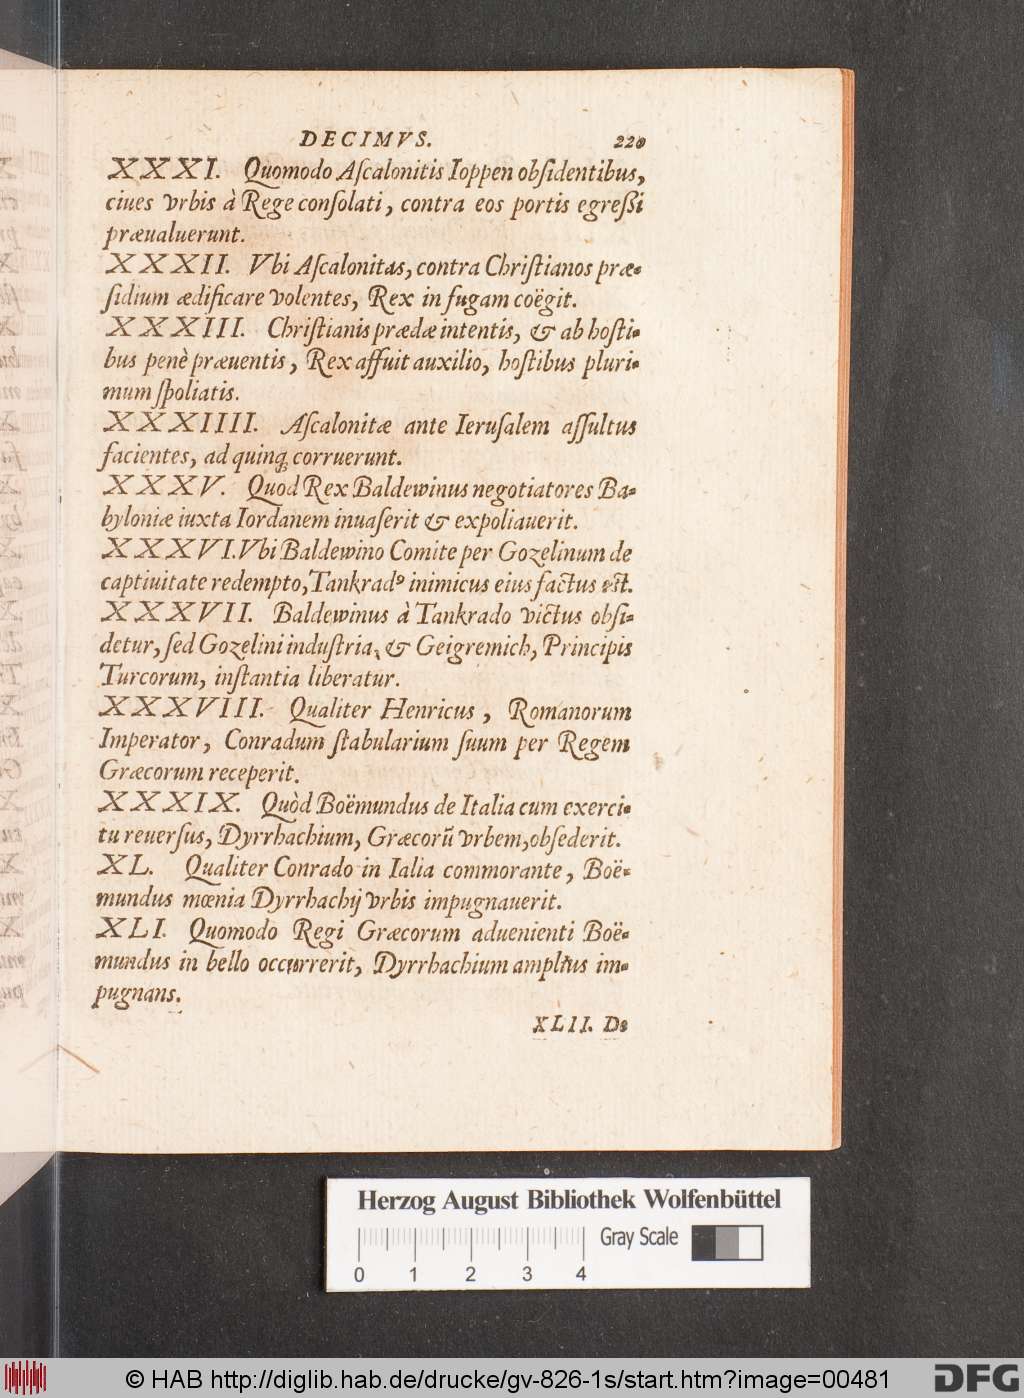 DECIMVS. 220
XXXI. Quomodo Aſcalonitis Ioppen obſidentibus,
ciues vrbis à Rege conſolati, contra eos portis egreßi
præualuerunt.
XXXII. Vbi Aſcalonitas, contra Chriſtianos præ-
ſidium ædificare volentes, Rex in fugam coëgit.
XXXIII. Chriſtianis prædæ intentis, & ab hoſti-
bus penè præuentis, Rex affuit auxilio, hoſtibus pluri-
mum ſpoliatis.
XXXIIII. Aſcalonitæ ante Ieruſalem aſſultus
facientes, ad quinq́ corruerunt.
XXXV. Quod Rex Baldewinus negotiatores Ba-
byloniæ iuxta Iordanem inuaſerit & expoliauerit.
XXXVI. Vbi Baldewino Comite per Gozelinum de
captiuitate redempto, Tankradꝰ inimicus eius factus est.
XXXVII. Baldewinus à Tankrado victus obſi-
detur, ſed Gozelini induſtria, & Geigremich, Principis
Turcorum, inſtantia liberatur.
XXXVIII. Qualiter Henricus, Romanorum
Imperator, Conradum ſtabularium ſuum per Regem
Græcorum receperit.
XXXIX. Quòd Boëmundus de Italia cum exerci-
tu reuerſus, Dyrrhachium, Græcorũ vrbem, obſederit.
XL. Qualiter Conrado in Ialia commorante, Boë-
mundus mœnia Dyrrhachij vrbis impugnauerit.
XLI. Quomodo Regi Græcorum aduenienti Boë-
mundus in bello occurrerit, Dyrrhachium amplius im-
pugnans.
XLII. De
Herzog August Bibliothek Wolfenbüttel
Gray Scale
0 1 2 3 4
© HAB http://diglib.hab.de/drucke/gv-826-1s/start.htm?image=00481
DFG